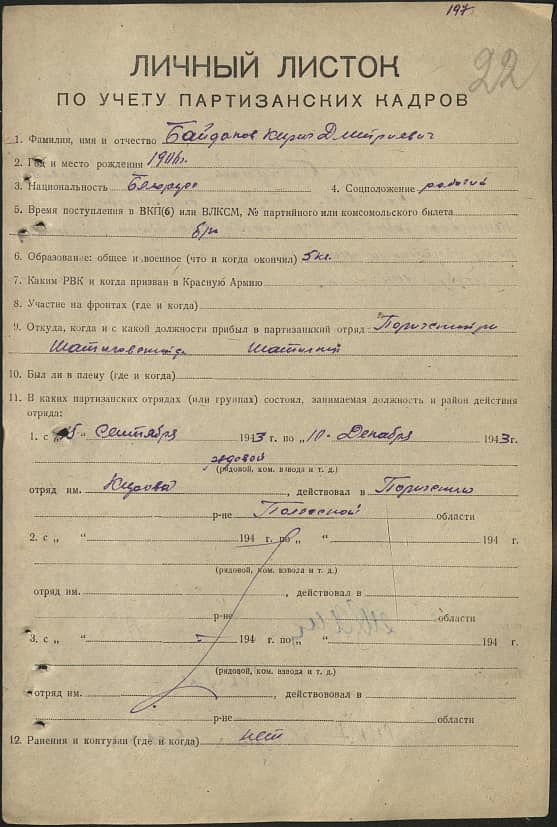 197.
22
ЛИЧНЫЙ ЛИСТОК
ПО УЧЕТУ ПАРТИЗАНСКИХ КАДРОВ
1. Фамилия, имя и отчество Байдаков Дмитриевич
2. Год и место рождения 1906 г.
3. Национальность Белорус 4. Соцположение рабочий
5. Время поступления в ВКП(б) или ВЛКСМ, № партийного или комсомольского билета
б/п
6. Образование: общее и военное (что и когда окончил) 5 кл.
7. Каким РВК и когда призван в Красную Армию
8. Участие на фронтах (где и когда)
9. Откуда, когда и с какой должности прибыл в партизанкий отряд
10. Был ли в плену (где и когда)
11. В каких партизанских отрядах (или группах) состоял, занимаемая должность и район действия
отряда:
1. с „ 5 Сентября 1943 г. по „10" Декабря 1943 г.
рядовой
(рядовой, ком. взвода и т. д.)
отряд им. Кирова, действовал в
р-не Полесской области
2. с „ “ 194 г. по „ “ 194 г.
(рядовой, ком. взвода и т. д.)
отряд им. , действовал в
р-не области
3. с „ “ 194 г. по „ “ 194 г.
(рядовой, ком. взвода и т. д.)
отряд им. , действовал в
р-не области
12. Ранения и контузии (где и когда) нет